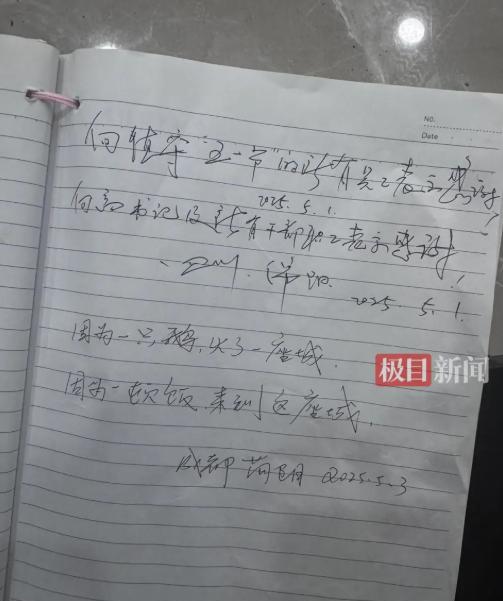 NO.
Date
向值守"五一节"的所有员工表示感谢!
2025.5.1.
向书记及所有干部职工表示感谢!
四川.
2025.5.1.
因为一只鹅,火了一座城.
因为一顿饭,来到这座城.
极目新闻
成都 2025.5.3